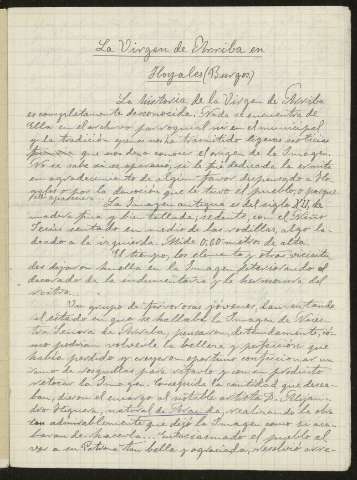 La Virgen de Arriba en
Hoyales (Burgos)
La historia de la Virgen de Arriba
es completamente desconocida. Nada se encuentra de
Ella en el archivo parroquial ni en el municipal
y la tradición no nos ha transmitido algunas noticias
que nos den conocer el origen de la Imagen.
No se sabe si es aparecida, si le fué dedicada la ermita
en agradecimiento de algún favor dispensado a Ho
yales o por la devoción que le tuvo el pueblo, o porque
La Imagen antigua es del siglo XII, de
madera fina y bien tallada, sedente, con el Niño
Jesús sentado en medio de las rodillas, algo la
deado a la izquierda. Mide 0,60 metros de alta.
El tiempo, los elementos y otras vicisitu
des dejaron huella en la Imagen deteriorando el
decorado de la indumentaria y la hermosura del
rostro.
Un grupo de fervorosas jóvenes, lamentando
el estado en que se hallaba la Imagen de Nues
tra Señora de Arriba, pensaron detenidamente, có
mo podrían volverle la belleza y perfección que
había perdido y creyeron oportuno confeccionar un
ramo de rosquillas para rifarlo y con su producto
retocar la Imagen. Conseguida la cantidad que desea
ban, dieron el encargo al notible artista D. Alejan
dro Itiguera, natural de Aranda, realizando la obra
tan admirablemente que dejó la Imagen como se aca
baran de hacerla... Entusiasmado el pueblo al
ver a su Patrona tan bella y agraciada, resolvió